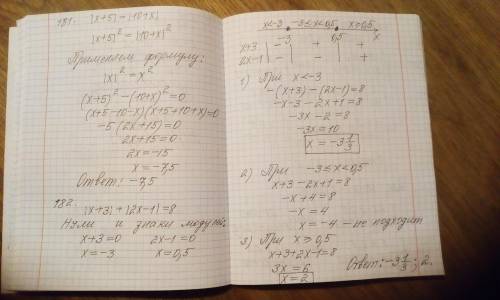 181. |x+5| = |10+x|
|x+5|² = |10+x|²
Применяем формулу:
|x|² = x²
(x+5)² - (10+x)² = 0
(x+5-10-x)(x+5+10+x)=0
-5(2x+15)=0
2x+15=0
2x=-15
x=-7,5
Ответ: -7,5
182. |x+3|+|2x-1|=8
Нули и знаки модулей:
x+3=0 2x-1=0
x=-3 x=0,5
x<-3 -3≤x<0,5 x≥0,5
-3 0,5 x
x+3 - + +
2x-1 - - +
1) При x<-3
-(x+3)-(2x-1)=8
-x-3-2x+1=8
-3x-2=8
-3x=10
x=-3 1/3
2) При -3≤x<0,5
x+3-2x+1=8
-x+4=8
-x=4
x=-4 - не подходит
3) При x≥0,5
x+3+2x-1=8
3x=6
x=2
Ответ: -3 1/3; 2.